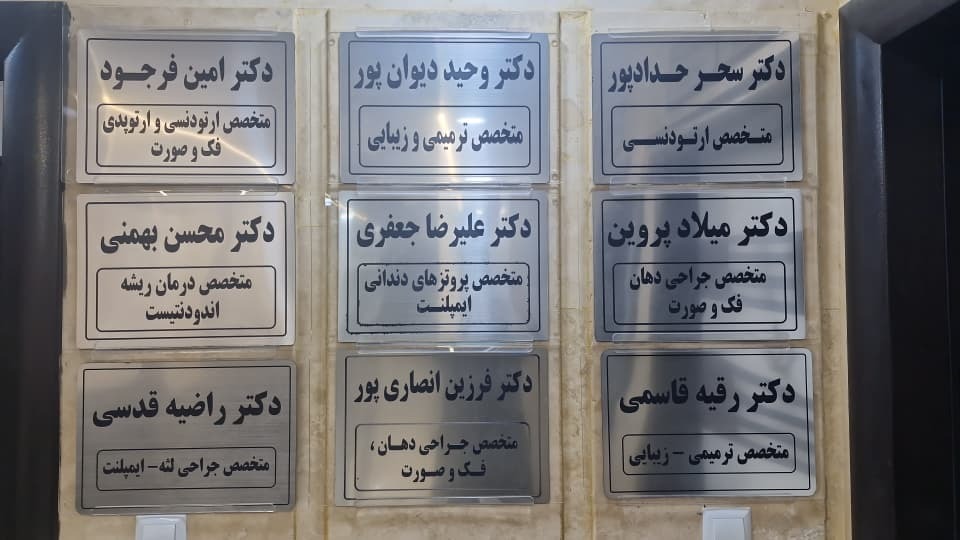 دکتر سحر حدادپور
متخصص ارتودنسی
دکتر وحید دیوان پور
متخصص ترمیمی و زیبایی
دکتر امین فرجود
متخصص ارتودنسی و ارتوپدی
فک و صورت
دکتر میلاد پروین
متخصص جراحی دهان
فک و صورت
دکتر علیرضا جعفری
متخصص پروتزهای دندانی
ایمپلنت
دکتر محسن بهمنی
متخصص درمان ریشه
اندودنتیست
دکتر رقیه قاسمی
متخصص ترمیمی - زیبایی
دکتر فرزین انصاری پور
متخصص جراحی دهان ،
فک و صورت
دکتر راضیه قدسی
متخصص جراحی لثه - ایمپلنت